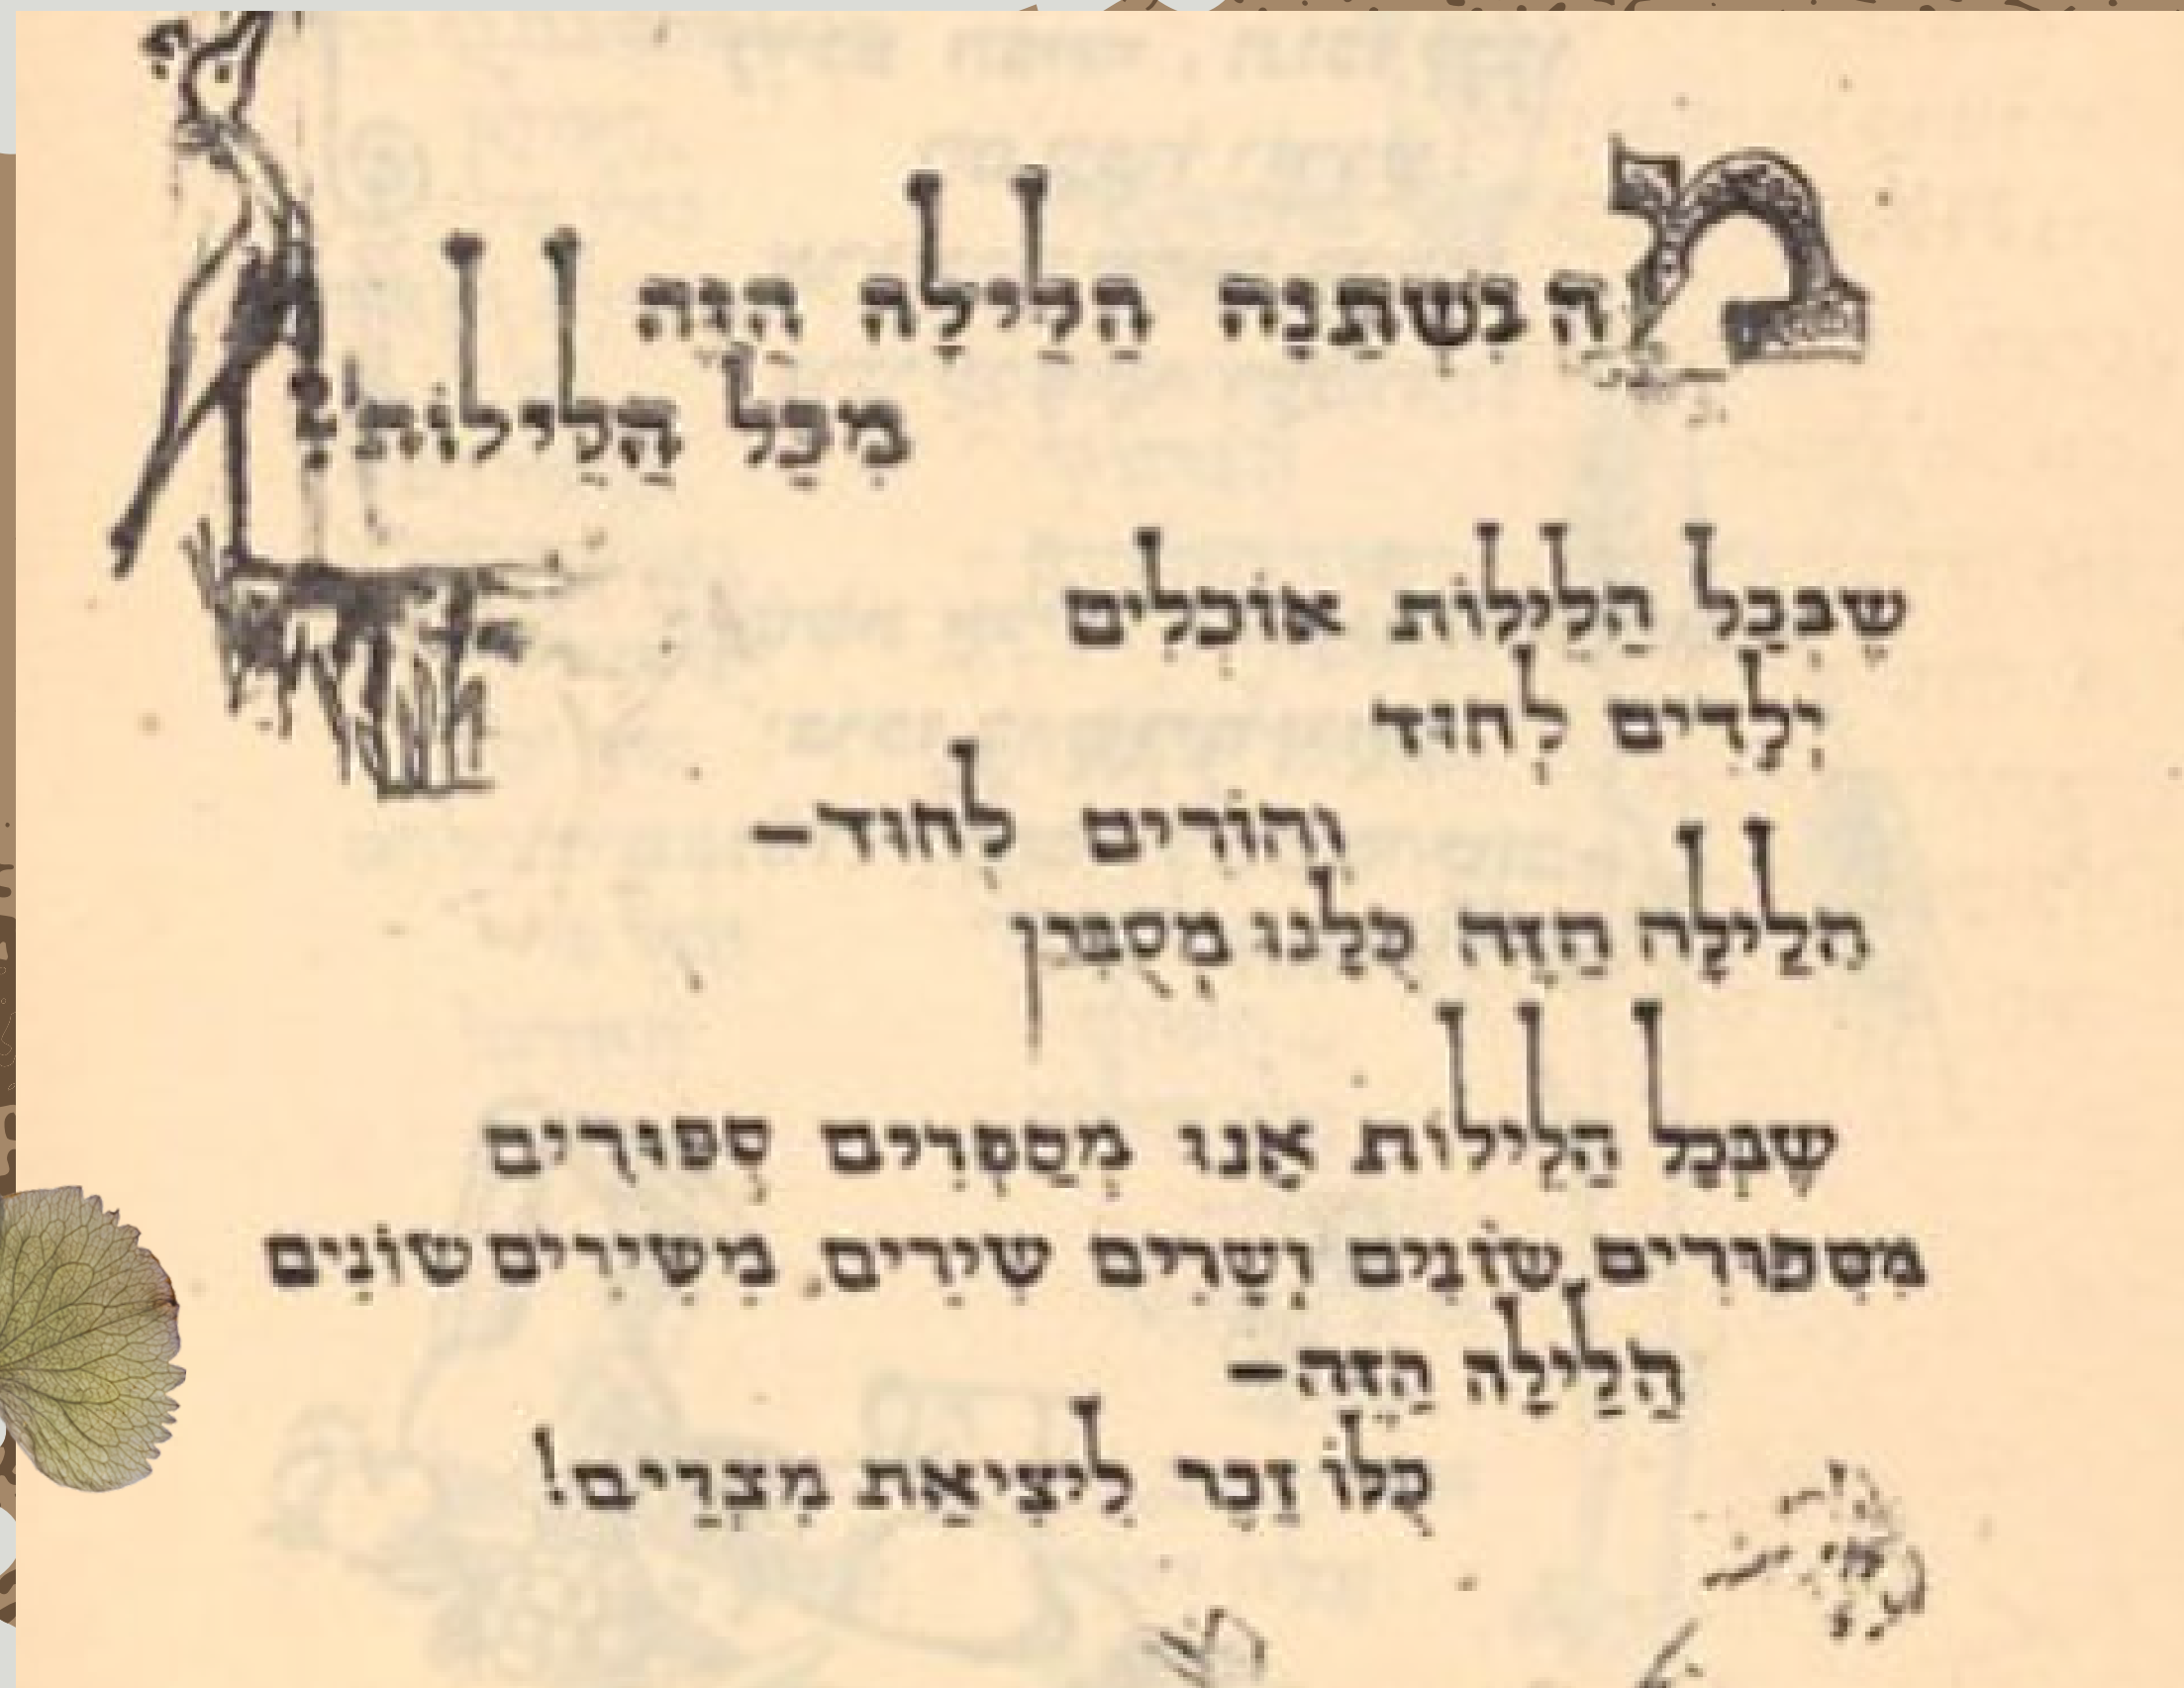 מַה נִשְׁתַּנָּה הַלַּיְלָה הַזֶּה
מִכָּל הַלֵּילוֹת?
שֶׁבְּכָל הַלֵּילוֹת אוֹכְלִים
יְלָדִים לְחוּד
וְהוֹרִים לְחוּד–
הַלַּיְלָה הַזֶּה כֻּלָּנוּ מְסֻבִּין
שֶׁבְּכָל הַלֵּילוֹת אָנוּ מְסַפְּרִים סִפּוּרִים
מִסִּפּוּרִים שׁוֹנִים וְשָׁרִים שִׁירִים מִשִּׁירִים שׁוֹנִים
הַלַּיְלָה הַזֶּה–
כֻּלּוֹ זֵכֶר לִיצִיאַת מִצְרַיִם!